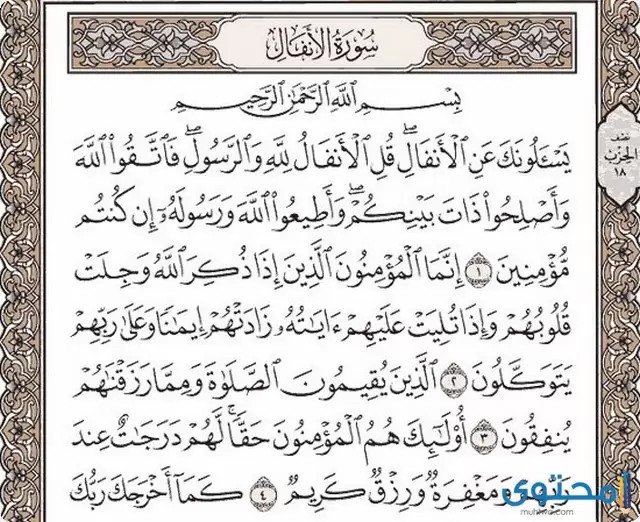 سُورَةُ الأَنفَالِ
بِسْمِ اللَّهِ الرَّحْمَٰنِ الرَّحِيمِ
يَسْـَٔلُونَكَ عَنِ الْأَنفَالِ ۖ قُلِ الْأَنفَالُ لِلَّهِ وَالرَّسُولِ ۖ فَاتَّقُوا اللَّهَ
وَأَصْلِحُوا ذَاتَ بَيْنِكُمْ ۖ وَأَطِيعُوا اللَّهَ وَرَسُولَهُۥ إِن كُنتُم
مُّؤْمِنِينَ ١ إِنَّمَا الْمُؤْمِنُونَ الَّذِينَ إِذَا ذُكِرَ اللَّهُ وَجِلَتْ
قُلُوبُهُمْ وَإِذَا تُلِيَتْ عَلَيْهِمْ ءَايَٰتُهُۥ زَادَتْهُمْ إِيمَٰنًا وَعَلَىٰ رَبِّهِمْ
يَتَوَكَّلُونَ ٢ الَّذِينَ يُقِيمُونَ الصَّلَوٰةَ وَمِمَّا رَزَقْنَٰهُمْ
يُنفِقُونَ ٣ أُولَٰئِكَ هُمُ الْمُؤْمِنُونَ حَقًّا ۚ لَّهُمْ دَرَجَٰتٌ عِندَ
رَبِّهِمْ وَمَغْفِرَةٌ وَرِزْقٌ كَرِيمٌ ٤ كَمَا أَخْرَجَكَ رَبُّكَ
الحِزْب
١٨
محتوى